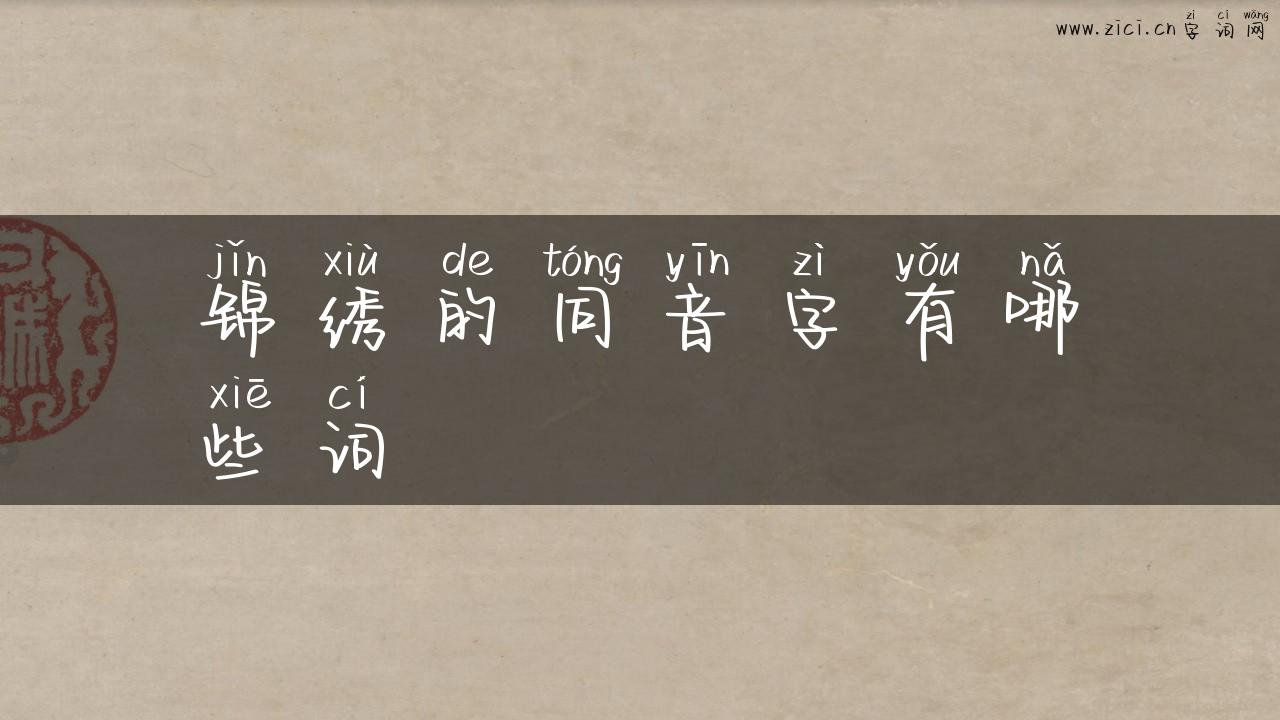 zì cí wǎng
www.zici.cn 字词网
jǐn xiù de tóng yīn zì yǒu nǎ
锦绣的同音字有哪
xiē cí
些词